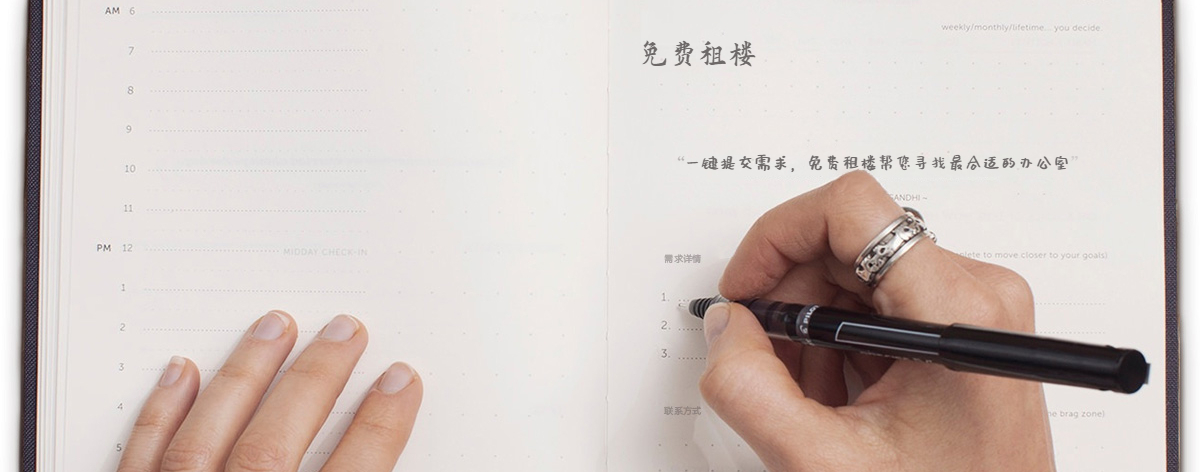 AM 6
7
8
9
10
11
PM 12 MIDDAY CHECK-IN
1
2
3
4
5
weekly/monthly/lifetime... you decide
免费租楼
“一键提交需求，免费租楼帮您寻找最合适的办公室”
GANDHI ~
需求详情
to move closer to your goals)
1.
2.
3.
PILOT
联系方式
brag zone)